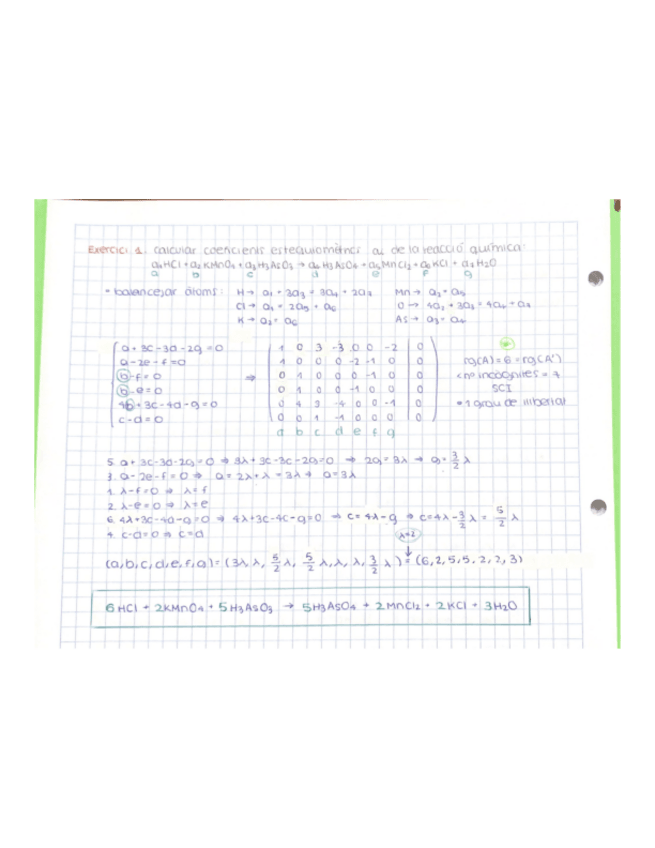 Exercici 1. Calcular coeficients estequiomètrics ai de la reacció química:
a1HCl + a2KMnO4 + a3H3AsO3 → a4H3AsO4 + a5MnCl2 + a6KCl + a7H2O
a b c d e f g
• balancejar àtoms: H → a1 + 3a3 = 3a4 + 2a7 Mn → a2 = a5
Cl → a1 = 2a5 + a6 O → 4a2 + 3a3 = 4a4 + a7
K → a2 = a6 As → a3 = a4
a + 3c - 3d - 2g = 0
a - 2e - f = 0
b - f = 0
b - e = 0
4b + 3c - 4d - g = 0
c - d = 0
⇒
1 0 3 -3 0 0 -2 0
1 0 0 0 -2 -1 0 0
0 1 0 0 0 -1 0 0
0 1 0 0 -1 0 0 0
0 4 3 -4 0 0 -1 0
0 0 1 -1 0 0 0 0
a b c d e f g
rg(A) = 6 = rg(A')
< nº incògnites = 7
SCI
1 grau de llibertat
5. a + 3c - 3d - 2g = 0 ⇒ 3λ + 3c - 3c - 2g = 0 ⇒ 2g = 3λ → g = 3/2 λ
3. a - 2e - f = 0 ⇒ a = 2λ + λ = 3λ ⇒ a = 3λ
1. λ - f = 0 ⇒ λ = f
2. λ - e = 0 ⇒ λ = e
6. 4λ + 3c - 4d - g = 0 ⇒ 4λ + 3c - 4c - g = 0 ⇒ c = 4λ - g ⇒ c = 4λ - 3/2 λ = 5/2 λ
4. c - d = 0 ⇒ c = d
λ=2
(a, b, c, d, e, f, g) = (3λ, λ, 5/2 λ, 5/2 λ, λ, λ, 3/2 λ) = (6, 2, 5, 5, 2, 2, 3)
6HCl + 2KMnO4 + 5H3AsO3 → 5H3AsO4 + 2MnCl2 + 2KCl + 3H2O